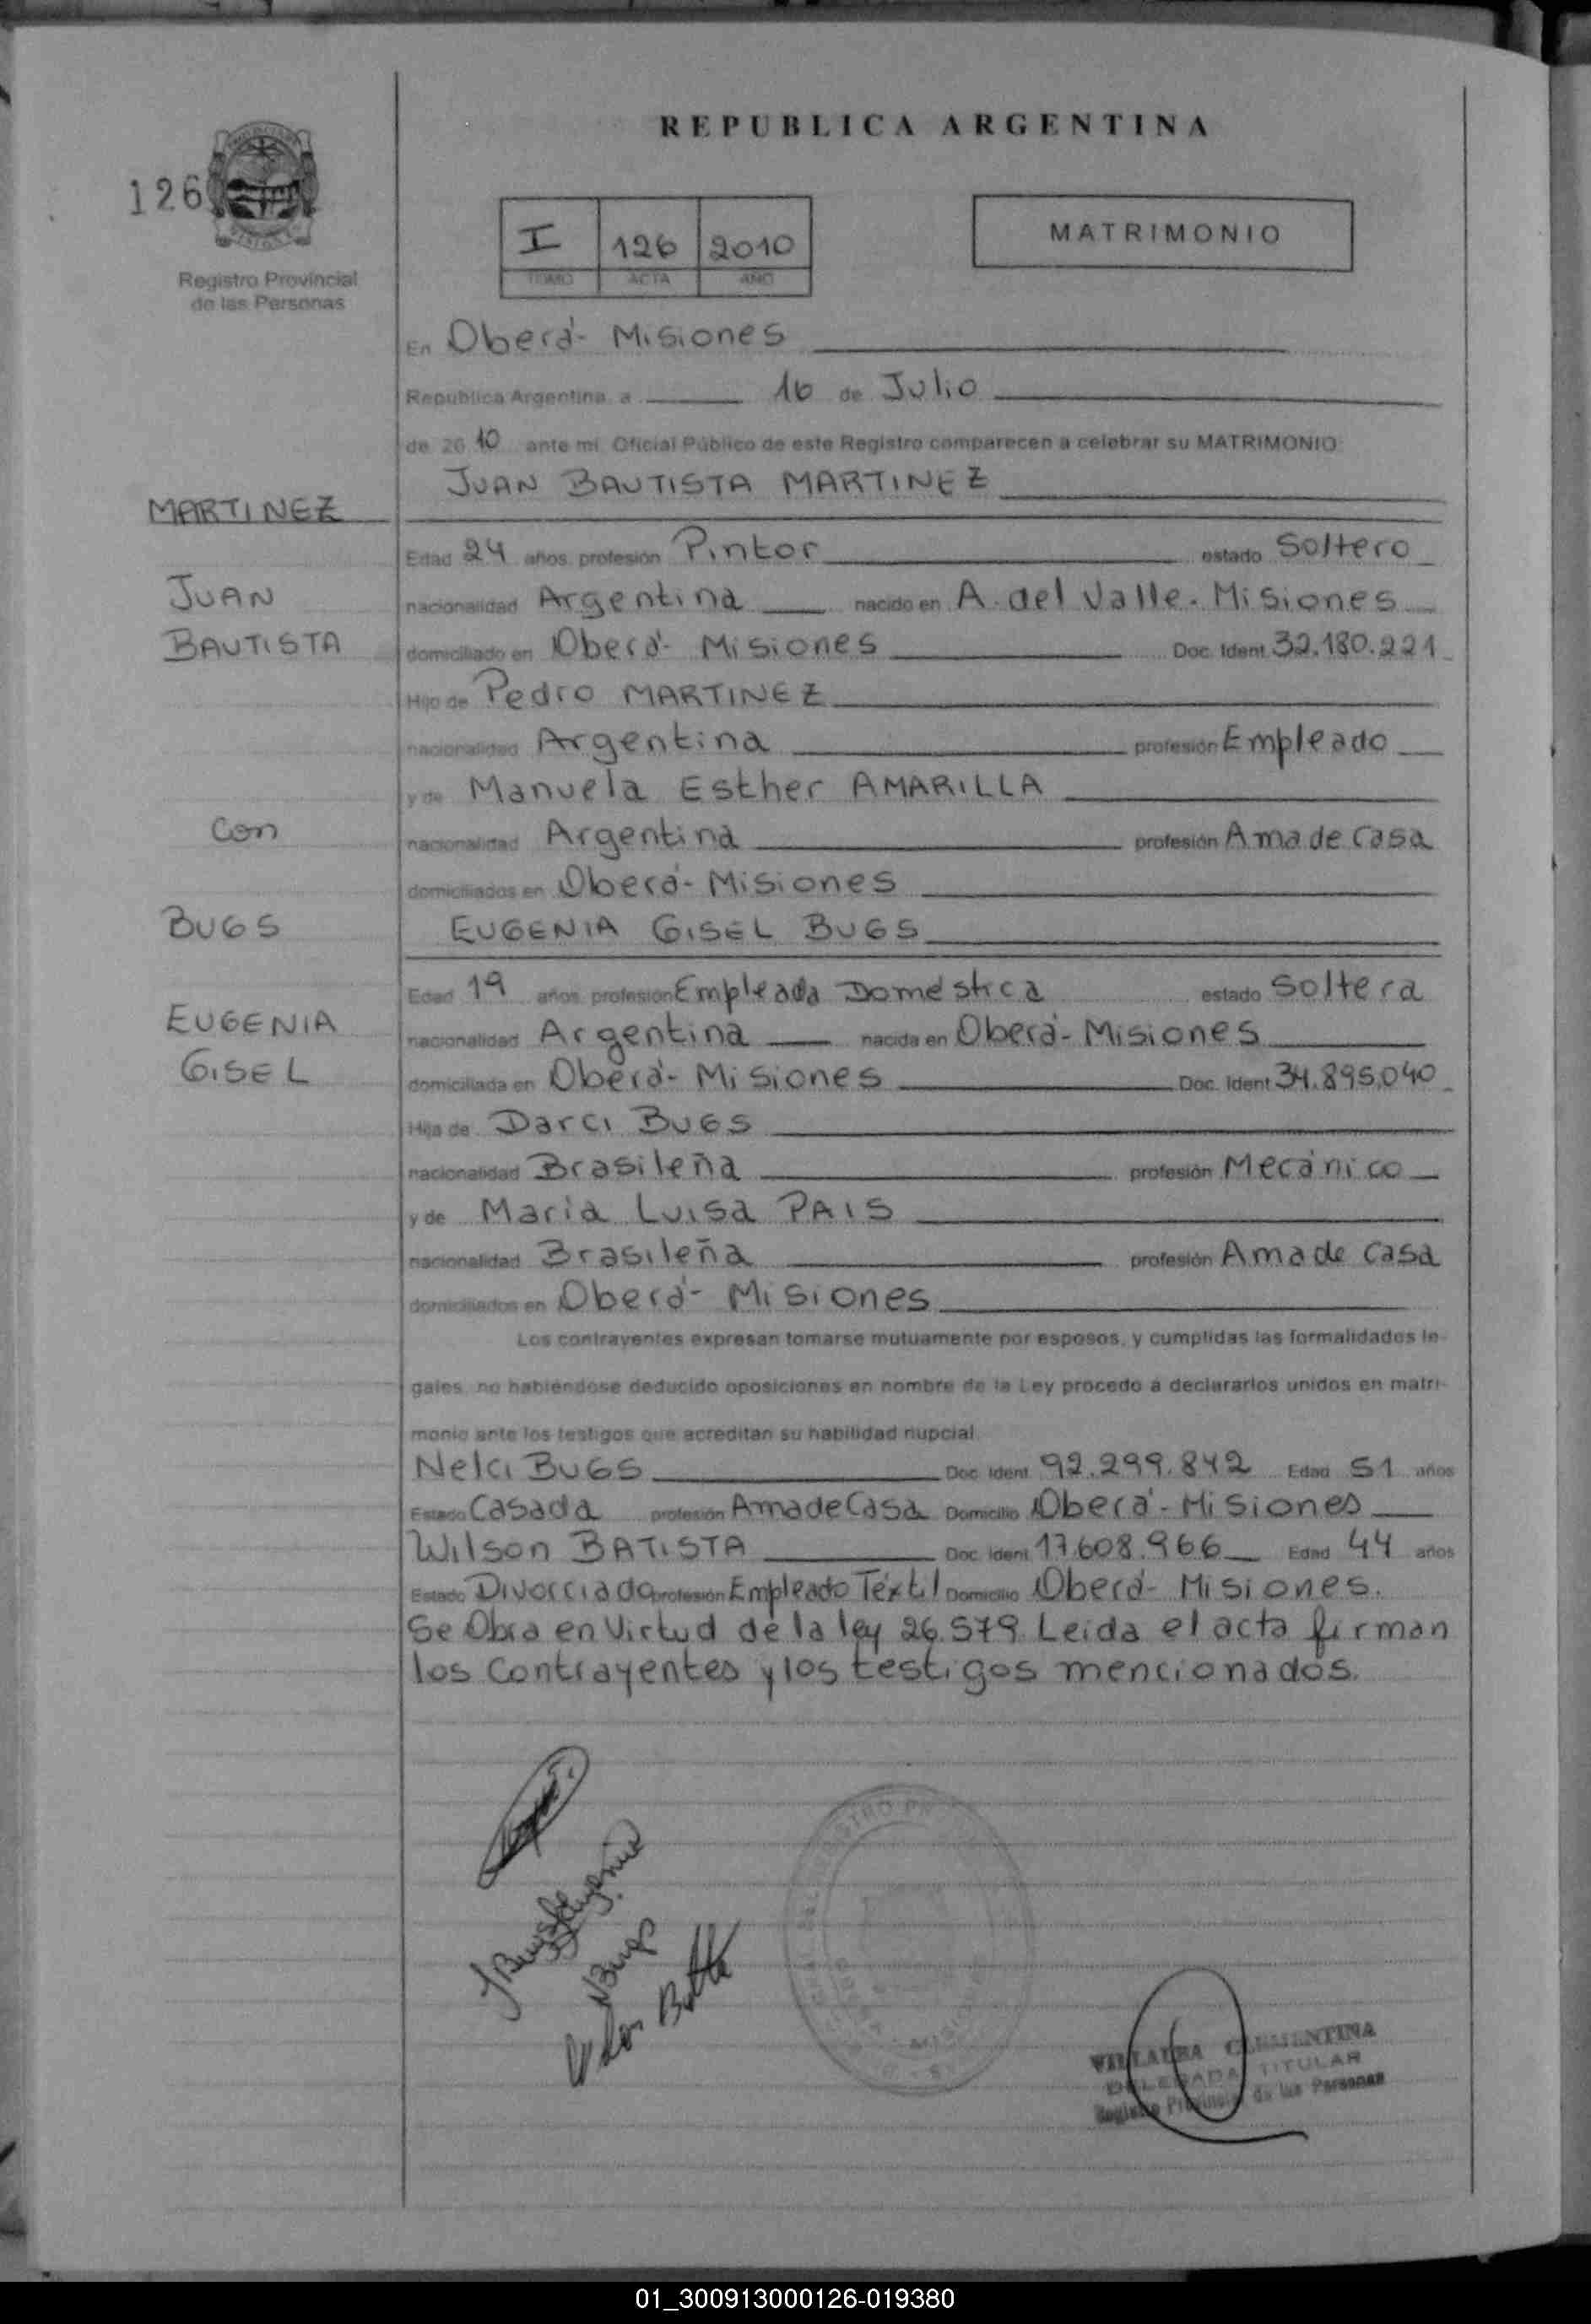 REPUBLICA ARGENTINA
126
Registro Provincial
de las Personas
I 126 2010
TOMO ACTA AÑO
MATRIMONIO
En Oberá- Misiones
Republica Argentina, a 16 de Julio
de 20 10 ante mi, Oficial Público de este Registro comparecen a celebrar su MATRIMONIO
JUAN BAUTISTA MARTINEZ
MARTINEZ
Edad 24 años, profesión Pintor estado Soltero
JUAN
nacionalidad Argentina nacido en A. del Valle. Misiones
BAUTISTA
domiciliado en Oberá- Misiones Doc. Ident. 32.180.221
Hijo de Pedro MARTINEZ
nacionalidad Argentina profesión Empleado
y de Manuela Esther AMARILLA
con
nacionalidad Argentina profesión Ama de Casa
domiciliados en Oberá- Misiones
BUGS
EUGENIA GISEL BUGS
Edad 19 años, profesión Empleada Doméstica estado Soltera
EUGENIA
nacionalidad Argentina nacida en Oberá- Misiones
GISEL
domiciliada en Oberá- Misiones Doc. Ident. 34.895.040
Hija de Darci BUGS
nacionalidad Brasileña profesión Mecánico
y de Maria Luisa PAIS
nacionalidad Brasileña profesión Ama de Casa
domiciliados en Oberá- Misiones
Los contrayentes expresan tomarse mutuamente por esposos, y cumplidas las formalidades le-
gales, no habiéndose deducido oposiciones en nombre de la Ley procedo a declararlos unidos en matri-
monio ante los testigos que acreditan su habilidad nupcial.
Nelci BUGS Doc. Ident. 92.299.842 Edad 51 años
Estado Casada profesión Ama de Casa Domicilio Oberá- Misiones
Wilson BATISTA Doc. Ident. 17.608.966 Edad 44 años
Estado Divorciado profesión Empleado Téxtil Domicilio Oberá- Misiones.
Se Obra en Virtud de la ley 26.579. Leida el acta firman
los Contrayentes y los testigos mencionados.
NBugs
VILLALBA CLEMENTINA
DELEGADA TITULAR
Registro Provincial de las Personas
01_300913000126-019380